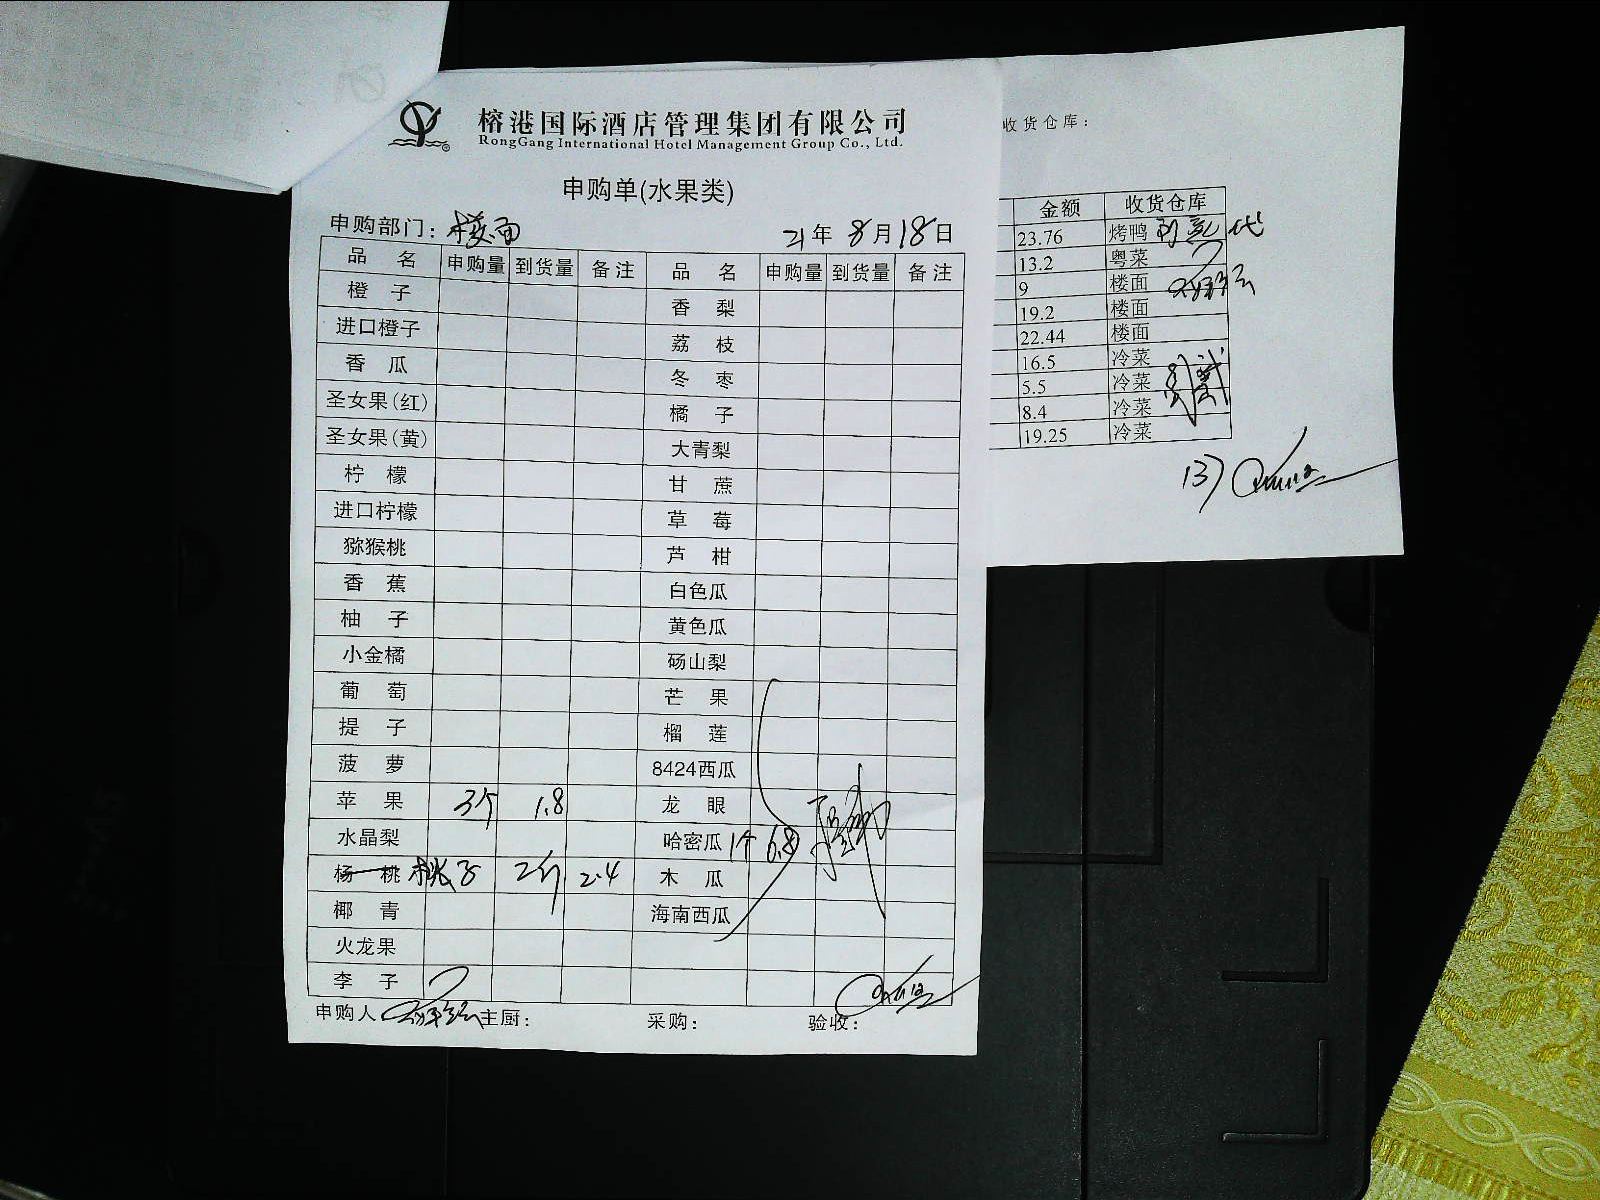 榕港国际酒店管理集团有限公司
RongGang International Hotel Management Group Co., Ltd.
申购单(水果类)
申购部门：楼面 21年8月18日
品名 申购量 到货量 备注 品名 申购量 到货量 备注
橙子 香梨
进口橙子 荔枝
香瓜 冬枣
圣女果(红) 橘子
圣女果(黄) 大青梨
柠檬 甘蔗
进口柠檬 草莓
猕猴桃 芦柑
香蕉 白色瓜
柚子 黄色瓜
小金橘 砀山梨
葡萄 芒果
提子 榴莲
菠萝 8424西瓜
苹果 3个 1.8 龙眼
水晶梨 哈密瓜 1个 6.8
杨桃 桃子 2斤 2.4 木瓜
椰青 海南西瓜
火龙果
李子
申购人 主厨： 采购： 验收：
收货仓库：
金额 收货仓库
23.76 烤鸭 代
13.2 粤菜
9 楼面
19.2 楼面
22.44 楼面
16.5 冷菜
5.5 冷菜
8.4 冷菜
19.25 冷菜